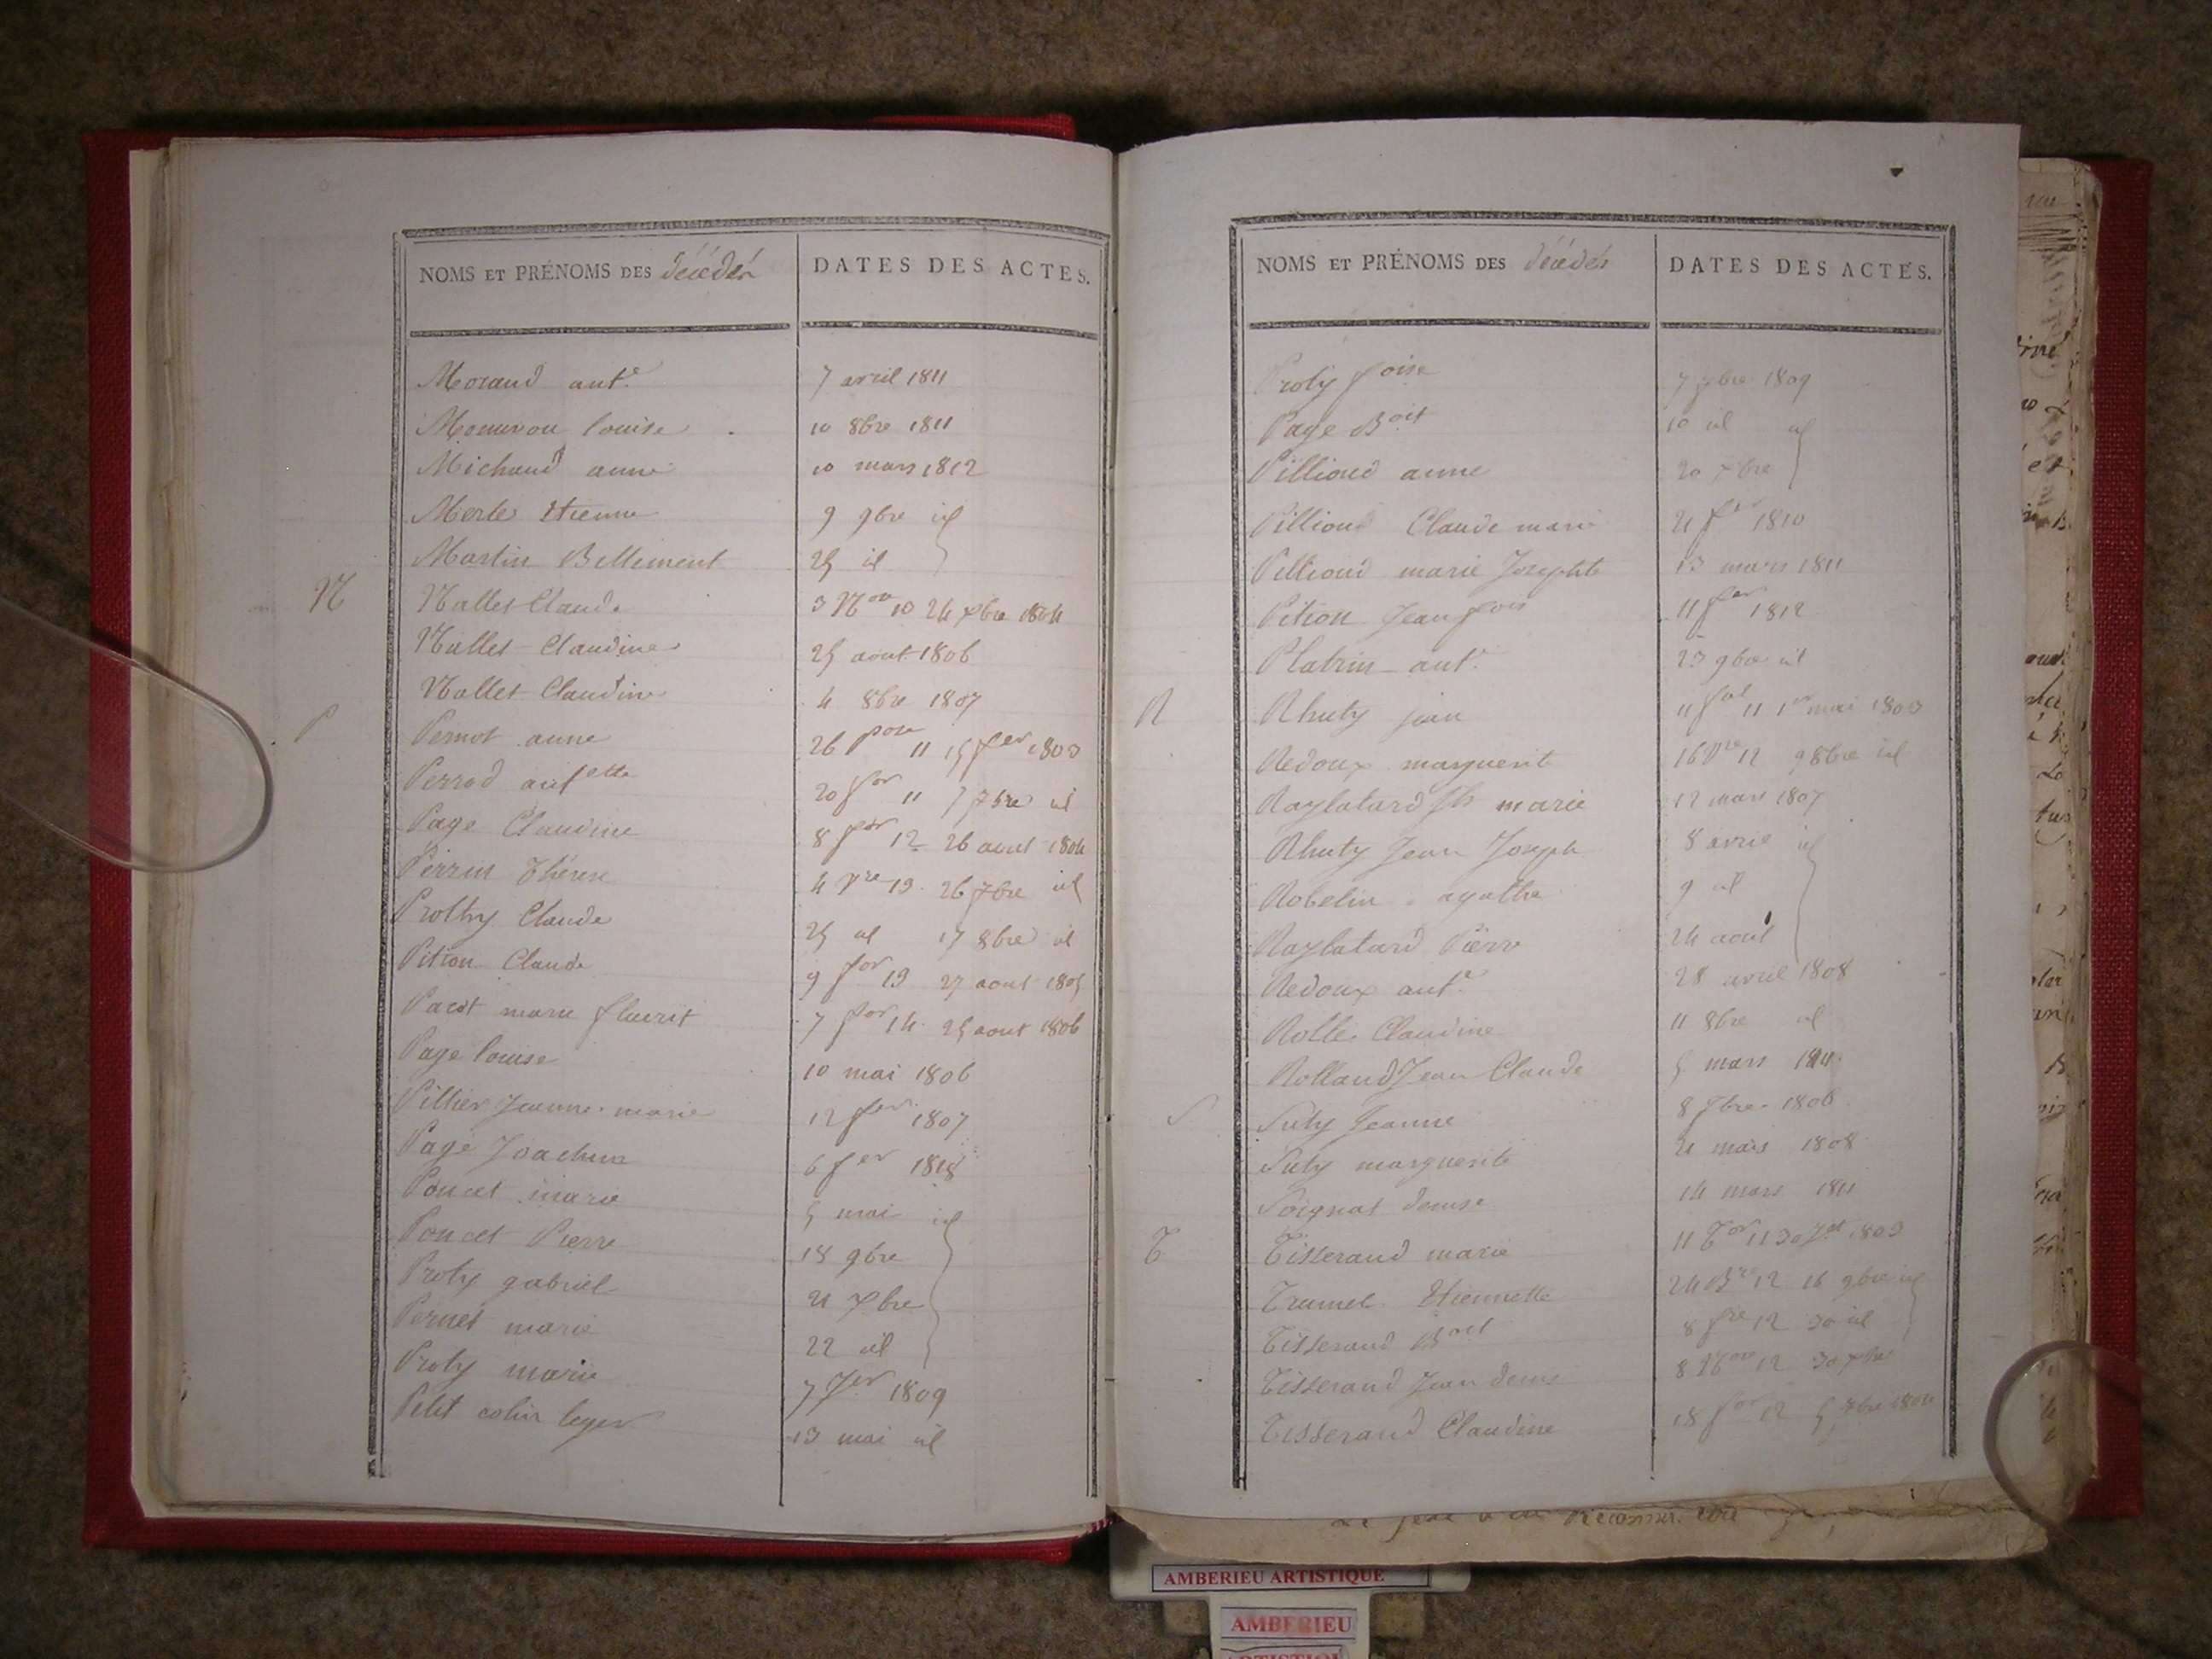 NOMS ET PRÉNOMS DES décédés
DATES DES ACTES.
Morand ant.e 7 avril 1811
louise 10 8bre 1811
Michaud anne 10 mars 1812
Merle Etienne 9 9bre id
Martin Bellement 25 id
N Nallet Claude 3 10 24 xbre 1804
Nallet Claudine 25 aout 1806
Nallet Claudine 4 8bre 1807
P Pernot anne 26 11 15 fer 1803
Perrod 20 for 11 7 7bre id
Page Claudine 8 for 12 26 aout 1804
Perrin Thérese 4 vre 13 26 7bre id
Prothy Claude 25 id 17 8bre id
Pition Claude 9 for 13 27 aout 1805
Pacot marie fleurit 7 for 14 25 aout 1806
Page louise 10 mai 1806
Pillier Jeanne marie 12 fer 1807
Page Joachim 6 fer 1818
Poncet marie 5 mai id
Poncet Pierre 18 9bre
Proty gabriel 21 xbre
Pernet marie 22 id
Proty marie 7 Jer 1809
Petit colin leger 13 mai id
NOMS ET PRÉNOMS DES décédés
DATES DES ACTES.
Proty foise 7 7bre 1809
Page Boit 10 id id
Pillioud anne 20 xbre
Pillioud Claude marie 21 1810
Pillioud marie Josephte 13 mars 1811
Pition Jean fois 11 fer 1812
Platrin ant.e 23 9bre id
R Rhuty jean 11 fal 11 1er mai 1803
Redoux marguerite 16 Vre 12 9 8bre id
Raylatard marie 12 mars 1807
Rhuty Jean Joseph 8 avril id
Robelin agathe 9 id
Raylatard Pierre 24 aout
Redoux ant.e 28 avril 1808
Rolle Claudine 11 8bre id
Rolland Jean Claude 5 mars 1811
S Suty Jeanne 8 7bre 1806
Suty marguerite 21 mars 1808
Soignat denise 14 mars 1811
T Tisserand marie 11 11 30 1803
Tramel Etiennette 24 Bre 12 16 9bre id
Tisserand Boit 8 fre 12 30 id
Tisserand Jean denis 8 12 30 xbre
Tisserand Claudine 18 for 12 5 7bre 1804
AMBERIEU ARTISTIQUE
AMBERIEU
ARTISTIQUE